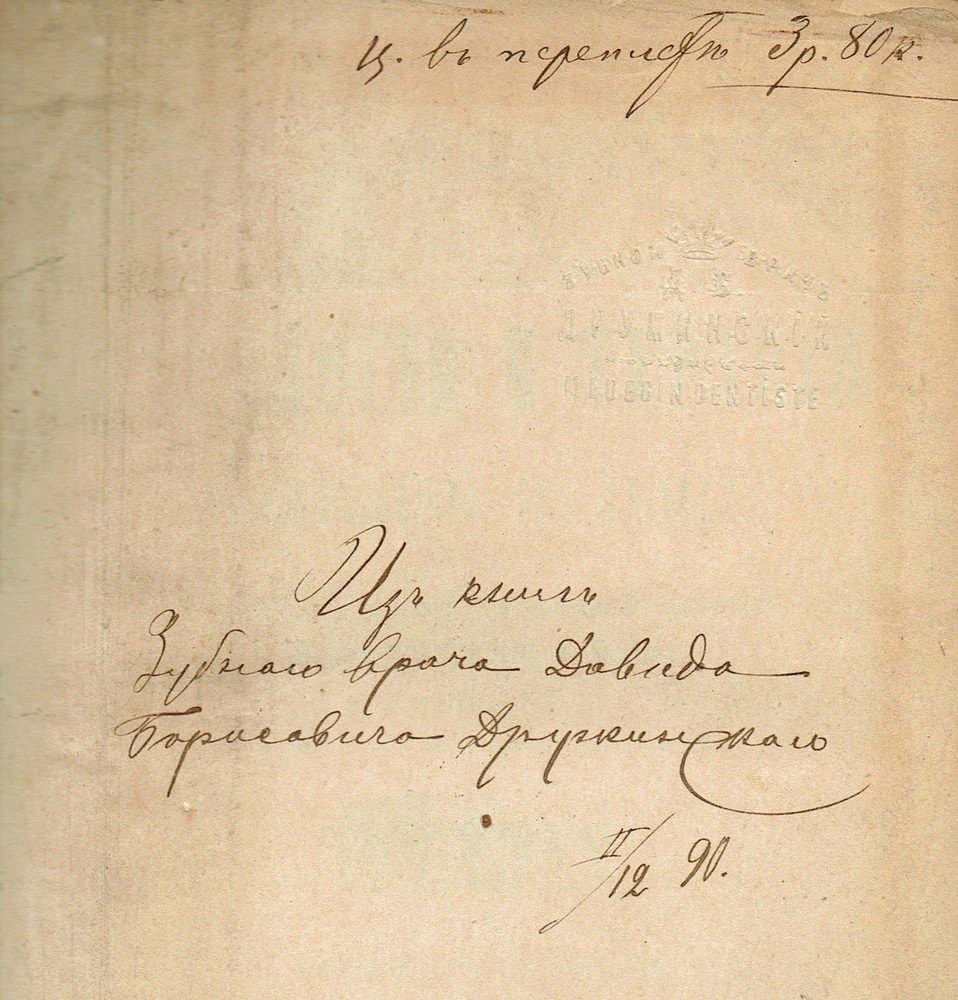 ц. въ переплетѣ 3 р. 80 к.
ЗУБНОЙ ВРАЧЪ
Д. Б.
ДРУЖИНСКІЙ
MEDECIN DENTISTE
Изъ книгъ
Зубнаго врача Давида
Борисовича Дружинскаго
II/12 90.